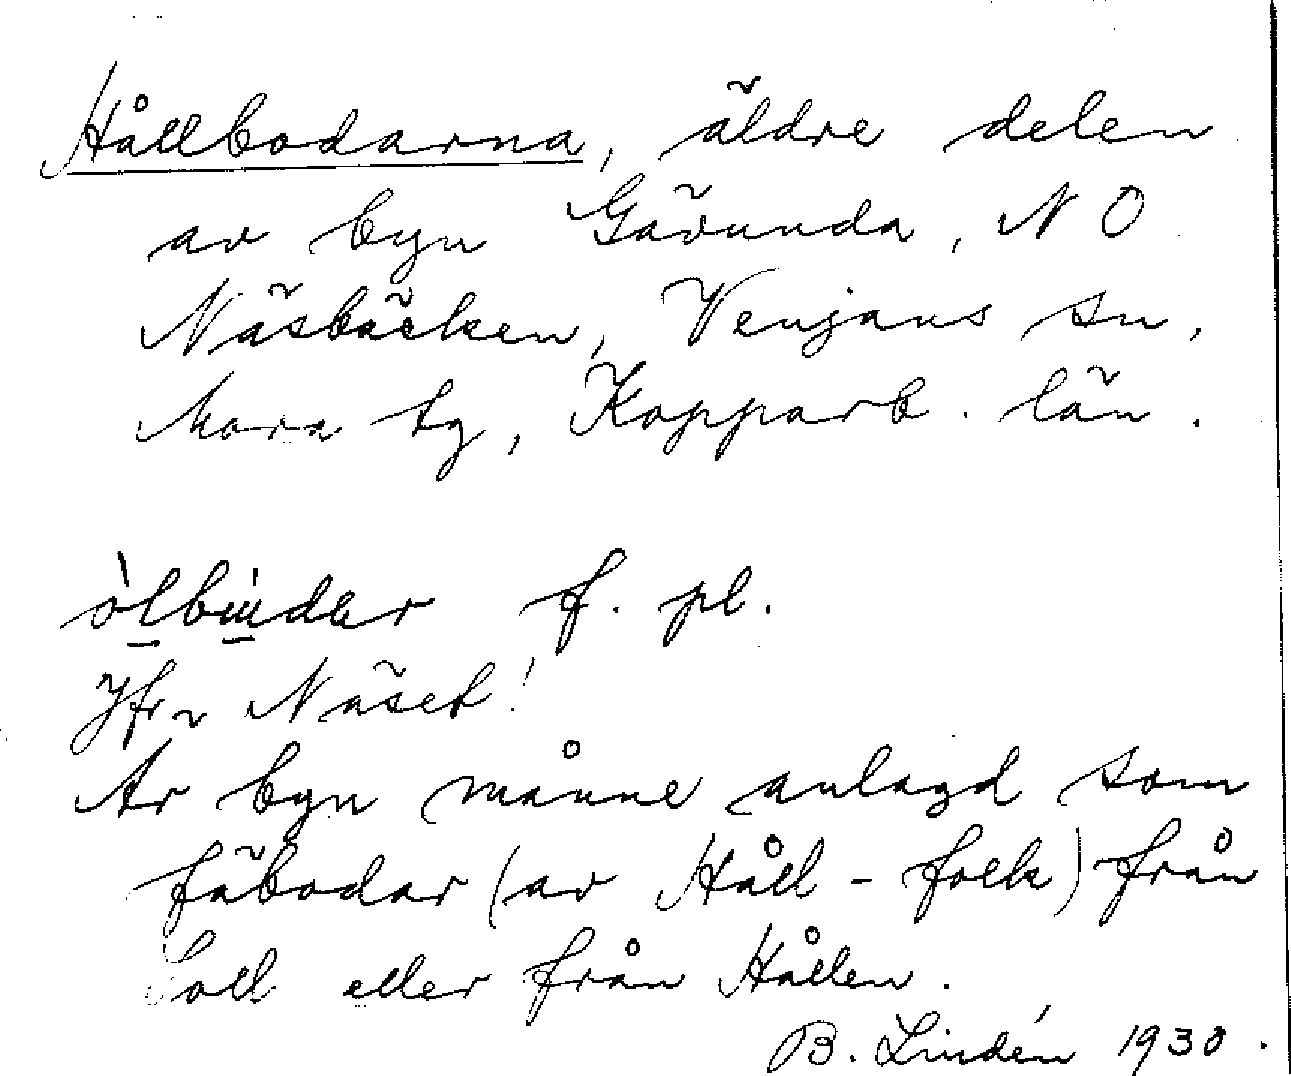 Hållbodarna, äldre delen
av byn Gävunda, N O
Näsbäcken, Venjans sn,
Mora tg, Kopparb. län.
f. pl.
Jfr Näset!
Är byn månne anlagd som
fäbodar (av Håll-folk) från
eller från Hållen.
B. Lindén 1930.